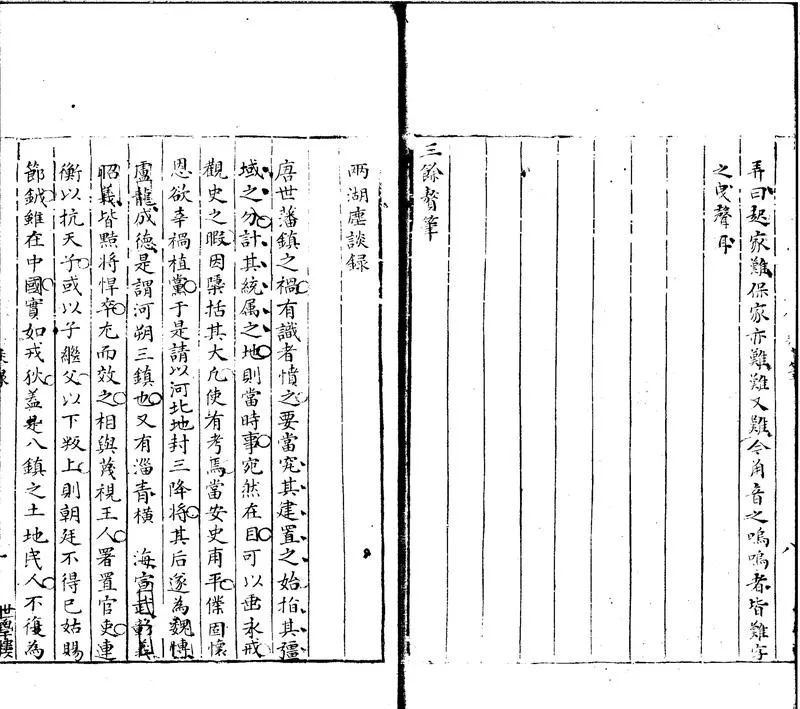 弄曰起家難保家亦難難又難今角音之嗚嗚者皆難字
之曳聲耳
三餘贅筆
八
兩湖麈談録
唐世藩鎮之禍有識者憤之要當究其建置之始指其疆
域之分計其統属之地則當時事宛然在目可以垂永戒
觀史之暇因櫽括其大凡使有考焉當安史甫平僕固懷
恩欲幸禍植黨于是請以河北地封三降将其后遂為魏愽
盧龍成德是謂河朔三鎮也又有淄青横 海宣武彰義
昭義皆黠将悍卒尤而效之相與蔑視王人署置官吏連
衡以抗天子或以子繼父以下叛上則朝廷不得已姑賜
節鉞雖在中國實如戎狄盖是八鎮之土地民人不復為
一
世學樓